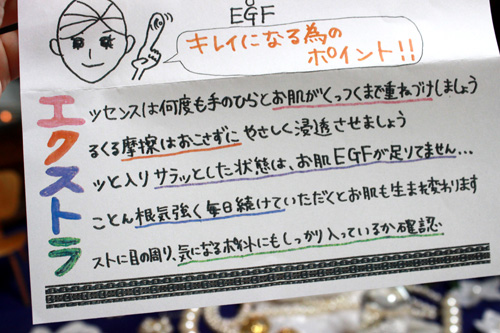 EGF
キレイになる為の
ポイント!!
エッセンスは何度も手のひらとお肌がくっつくまで重ねづけしましょう
クるくる摩擦はおこさずにやさしく浸透させましょう
スッと入りサラッとした状態は、お肌EGFが足りてません...
トことん根気強く毎日続けていただくとお肌も生まれ変わります
ラストに目の周り、気になるポイントにもしっかり入っているか確認.